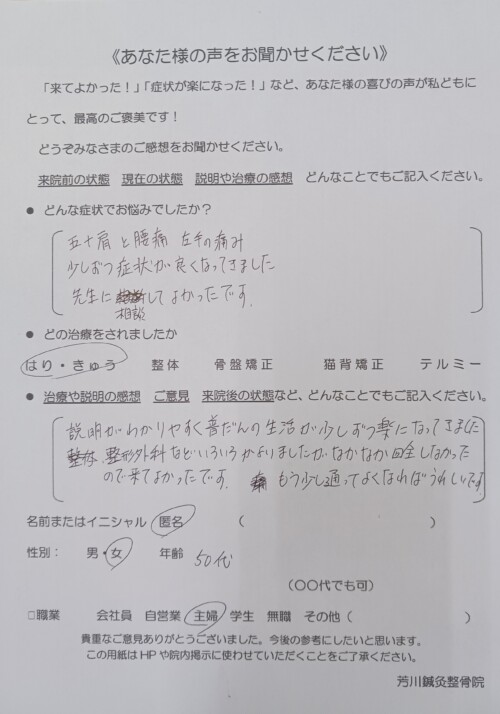 《あなた様の声をお聞かせください》
「来てよかった！」「症状が楽になった！」など、あなた様の喜びの声が私どもに
とって、最高のご褒美です！
どうぞみなさまのご感想をお聞かせください。
来院前の状態 現在の状態 説明や治療の感想 どんなことでもご記入ください。
● どんな症状でお悩みでしたか？
五十肩と腰痛 左手の痛み
少しずつ症状が良くなってきました
先生に相談してよかったです。
● どの治療をされましたか
はり・きゅう 整体 骨盤矯正 猫背矯正 テルミー
● 治療や説明の感想 ご意見 来院後の状態など、どんなことでもご記入ください。
説明がわかりやすく普だんの生活が少しずつ楽になってきました
整体、整形外科などいろいろかよりましたがなかなか回全しなかった
ので来てよかったです。 もう少し通ってよくなればうれしいです
名前またはイニシャル 匿名 （ ）
性別： 男・女 年齢 50代
（〇〇代でも可）
□職業 会社員 自営業 主婦 学生 無職 その他（ ）
貴重なご意見ありがとうございました。今後の参考にしたいと思います。
この用紙はHPや院内掲示に使わせていただくことをご了承ください。
芳川鍼灸整骨院